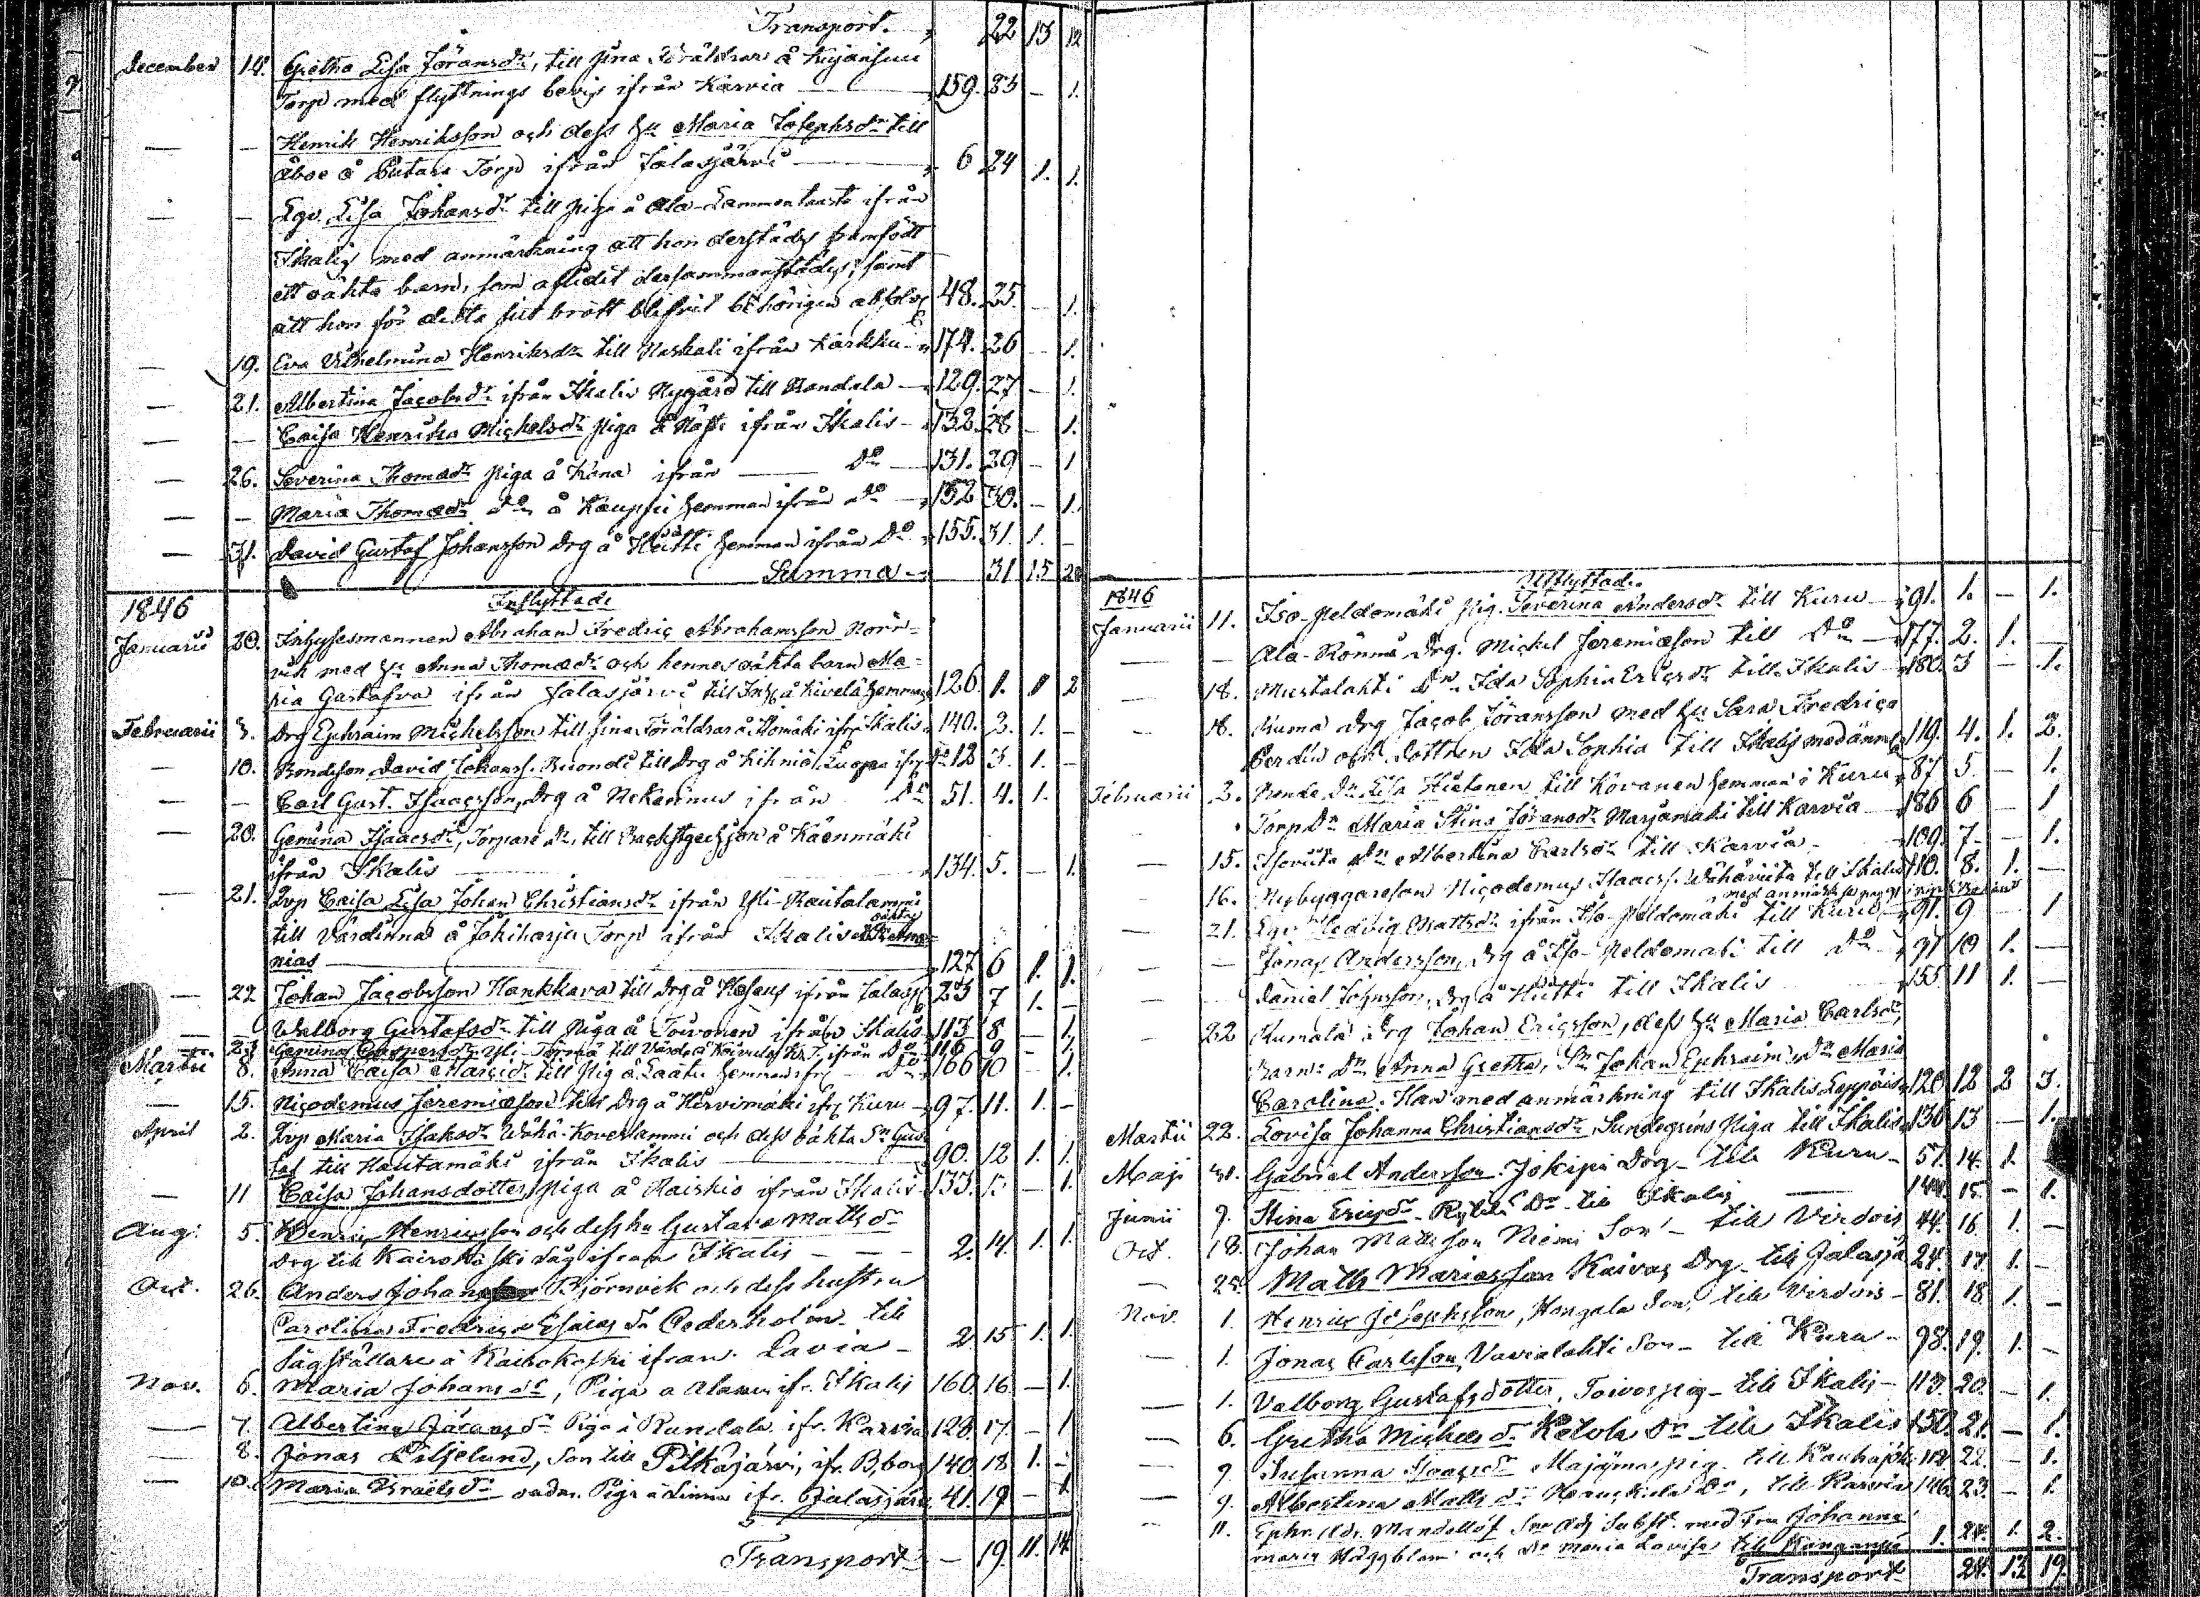 Transport. 22 13 12
December 14. Gretha Lisa Jöransdr, till sina Föräldrar å
Torp med flyttnings bevis ifrån Karvia 159. 23 — 1.
— — Henrik Henriksson och dess hu Maria Josephsdr till
åboe å Torp ifrån Jalasjärvi 6 24 1. 1.
— — Lgv. Lisa Johansdr till piga å Ala-Lammentausta ifrån
Ikalis med anmärkning att hon derstädes framfödt
ett oäkta barn, som aflidit dersammanstädes, samt
att hon för detta sitt brott blifvit behörigen absolv 48. 25. — 1.
— 19. Eva Vilhelmina Henriksdr till Raskali ifrån Karkku 174. 26 — 1.
— 21. Albertina Jacobsdr ifrån Ikalis Nygård till Randala 129. 27 — 1.
— — Caisa Henrika Michelsdr piga å ifrån Ikalis 132. 28 — 1.
— 26. Severina Thomædr piga å Kona ifrån — Do 131. 29 — 1
— — Maria Thomædr Do å Kauppi hemman ifrån Do 152 30. — 1.
— 31. David Gustaf Johansson Drg å Hütti hemman ifrån Do 155. 31. 1. —
Summa 31 15 20
1846 Inflyttade
Januarii 20. Inhysesmannen Abraham Fredric Abrahamsson Norr-
vik med hu Anna Thomædr och hennes oäkta barn Ma-
ria Gustafva ifrån Jalasjärvi till Inh. å Kivelä hemman 126 1. 1 2
Februarii 3. Drg Ephraim Michelsson till sina Föräldrar å ifr Ikalis 140. 2. 1. —
— 10. Bondeson David Johanss. Ruondi till Drg å Kihniö ifr Do 12 3. 1. —
— — Carl Gust. Isaacsson, Drg å Nekerinus ifrån Do 51. 4. 1.
— 20. Gemina Isaacsdr, Torpare dr, till å Käenmäki
ifrån Ikalis 134. 5. — 1.
— 21. Caisa Lisa Johan Christiansdr ifrån Yli-Rautalammi
till Värdinna å Jokiharju Torp ifrån Ikalis
nias 127 6 1. 1.
— 22 Johan Jacobsson Hankkara till Drg å ifrån Jalasj. 23 7 1. —
— — Walborg Gustafsdr till piga å Toivonen ifrån Ikalis 113 8 — 1.
Gemina Caspersdr Yli-Törmä till å ifrån Do 116 9 — 1.
Martii 8. Anna Caisa till Pig å Laatu hemman ifr Do 166 10 — 1.
— 15. Nicodemus Jeremiæson till Drg å Hirvimäki ifr Kuru 97. 11. 1. —
April 2. Maria Isaksdr Wähä-Koverlammi och dess oäkta Sn Gus-
taf till Hautamäki ifrån Ikalis 90. 12 1. 1.
— 11 Caisa Johansdotter, piga å Raiskio ifrån Ikalis 133. 13 — 1.
Aug: 5. Henric Henricsson och dess hu Gustava Mattsdr
Drg till Kairokoski såg ifrån Ikalis — 2. 14. 1. 1.
Oct. 26. Anders Johansson Björnvik och dess hustru
Carolina Fredrica Esaiasdr Cederholm till
Sågställare å Kairokoski ifrån Lavia — 2. 15 1. 1.
Nov. 6. Maria Johansdr, Piga å Alanen ifr. Ikalis 160 16 — 1.
— 7. Albertina Göransdr Piga å Randala ifr. Karvia 128. 17. — 1
— 8. Jonas Liljelund, Son till Pitkäjärvi, ifr. B.borg 140 18 1. —
— 10. Maria Israelsdr Piga å Linna ifr. Jalasjärvi 41. 19 — 1
Transport — 19. 11. 14
1846 Utflyttade
Januarii 11. Iso-Peldomäki pig. Severina Andersdr till Kuru 91. 1. — 1.
— — Ala-Rönnö Drg. Mickel Jeremiæson till Do 177. 2. 1. —
— 18. Mustalahti Dr Ida Sophia Ericsdr till Ikalis 180. 3 — 1.
— 18. Kuma Drg Jacob Jöransson med hu Sara Fredrica
Berdin och dottren Ida Sophia till Ikalis med anm. 119. 4. 1. 2.
Februarii 2. Bonde Dr Lisa Hietanen till Kovanen hemman i Kuru 87 5 — 1.
Torp. Dr Maria Stina Jöransdr Marjamäki till Karvia 186 6 — 1
— 15. Dr Albertina Carlsdr till Karvia 109. 7 — 1.
— 16. Nybyggareson Nicodemus Isaacss. till Ikalis 110. 8. 1. —
— 21. Lgv Hedvig Mattsdr ifrån Iso-Peldomäki till Kuru 91. 9 — 1
— — Jonas Andersson, Drg å Iso-Peldomäki till Do 91 10 1. —
— — Daniel Johnsson, Drg å Hütti till Ikalis 155 11 1. —
— 22 Kumala Drg Johan Ericsson, dess hu Maria Carlsdr,
Barn: Dr Anna Gretha, Sn Johan Ephraim, Dr Maria
Carolina. Han med anmärkning till Ikalis 120 12 2 3.
Martii 22. Lovisa Johanna Christiansdr, Piga till Ikalis 136 13 — 1.
Maji 31. Gabriel Andersson Jokipii Drg — till Kuru — 57. 14. 1.
Junii 7. Stina Ericsdr Dr till Ikalis — 144. 15 — 1.
Oct. 18. Johan Mattsson Niemi Son — till Virdois 44. 16 1. —
— 25. Matts Mariasson Kaivos Drg — till Jalasjä 24. 17. 1. —
Nov. 1. Henric Josephsson, Hangala Son, till Virdois — 81. 18. 1. —
— 1. Jonas Carlsson, Vavialahti Son — till Kuru — 98. 19. 1. —
— 1. Valborg Gustafsdotter, Toivos pig — till Ikalis — 113. 20. — 1.
— 6. Gretha Michelsdr Ketola Dr till Ikalis 150. 21. — 1.
— 9 Susanna Isacsdr Majamas pig — till Kauhajoki 112 22. — 1.
— 9. Albertina Mattsdr Dr, till Karvia 146. 23. — 1.
— 11. Ephr. Adr. Mandellöf Adj. Subst. med Fru Johanna
Maria Häggblom och Dr Maria Lovisa till Kangasala 1. 24. 1. 2.
Transport 24. 13 19.